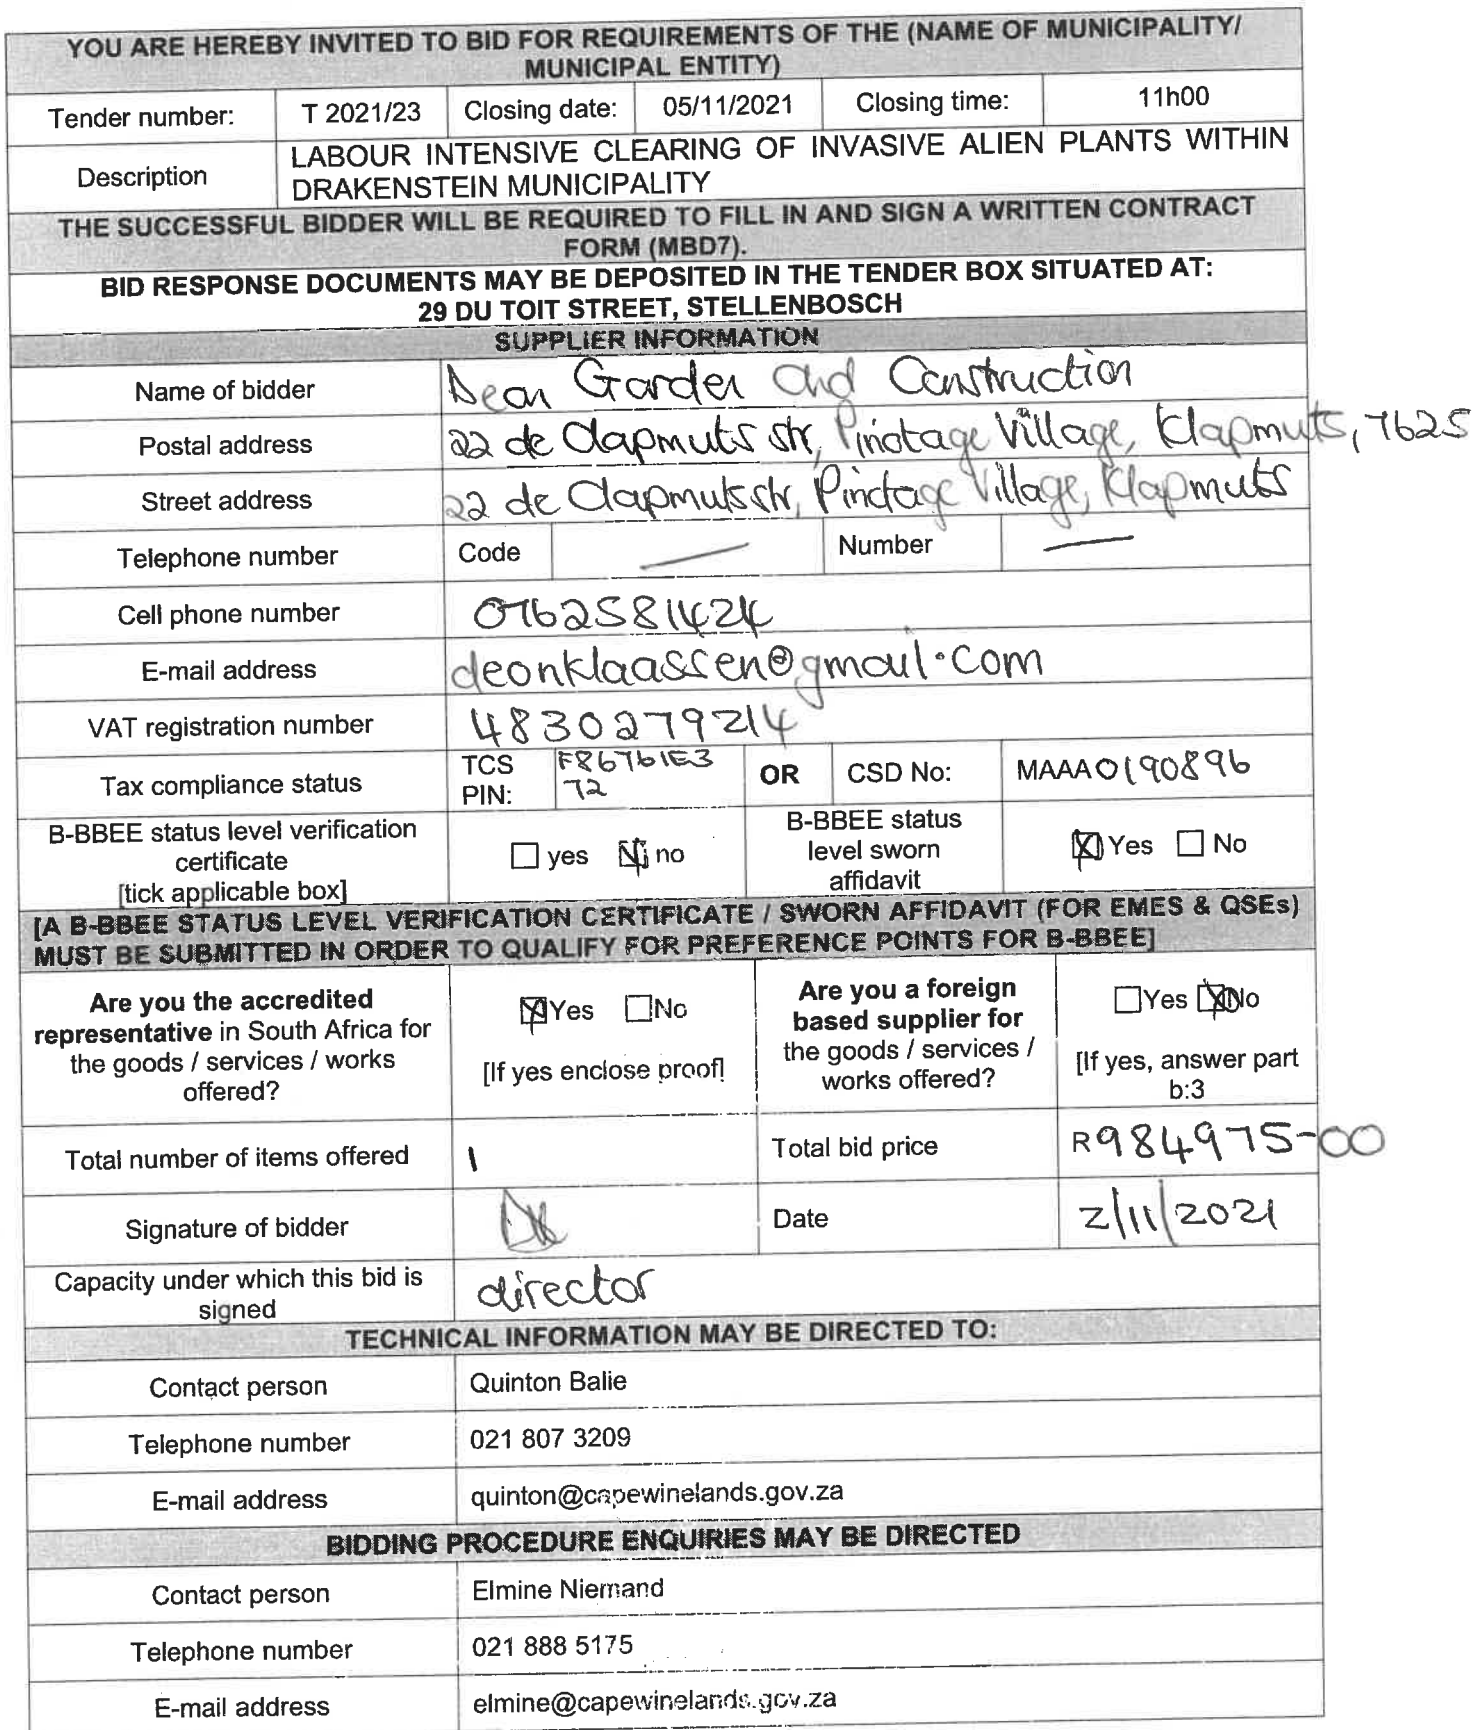 YOU ARE HEREBY INVITED TO BID FOR REQUIREMENTS OF THE (NAME OF MUNICIPALITY/
MUNICIPAL ENTITY)
Tender number: T 2021/23 Closing date: 05/11/2021 Closing time: 11h00
Description
LABOUR INTENSIVE CLEARING OF INVASIVE ALIEN PLANTS WITHIN
DRAKENSTEIN MUNICIPALITY
THE SUCCESSFUL BIDDER WILL BE REQUIRED TO FILL IN AND SIGN A WRITTEN CONTRACT
FORM (MBD7).
BID RESPONSE DOCUMENTS MAY BE DEPOSITED IN THE TENDER BOX SITUATED AT:
29 DU TOIT STREET, STELLENBOSCH
SUPPLIER INFORMATION
Name of bidder Garden and Construction
Postal address 22 de Clapmuts str, Pinotage Village, Klapmuts, 7625
Street address 22 de Clapmuts str, Pinotage Village, Klapmuts
Telephone number Code — Number —
Cell phone number 0762581424
E-mail address deonklaassen@gmail.com
VAT registration number 4830279214
Tax compliance status
TCS
PIN:
F86761E3
72
OR CSD No: MAAA0190896
B-BBEE status level verification
certificate
[tick applicable box]
yes no
B-BBEE status
level sworn
affidavit
Yes No
[A B-BBEE STATUS LEVEL VERIFICATION CERTIFICATE / SWORN AFFIDAVIT (FOR EMES & QSEs)
MUST BE SUBMITTED IN ORDER TO QUALIFY FOR PREFERENCE POINTS FOR B-BBEE]
Are you the accredited
representative in South Africa for
the goods / services / works
offered?
Yes No
[If yes enclose proof]
Are you a foreign
based supplier for
the goods / services /
works offered?
Yes No
[If yes, answer part
b:3
Total number of items offered 1 Total bid price R984975-00
Signature of bidder Date 2/11/2021
Capacity under which this bid is
signed
director
TECHNICAL INFORMATION MAY BE DIRECTED TO:
Contact person Quinton Balie
Telephone number 021 807 3209
E-mail address quinton@capewinelands.gov.za
BIDDING PROCEDURE ENQUIRIES MAY BE DIRECTED
Contact person Elmine Niemand
Telephone number 021 888 5175
E-mail address elmine@capewinelands.gov.za